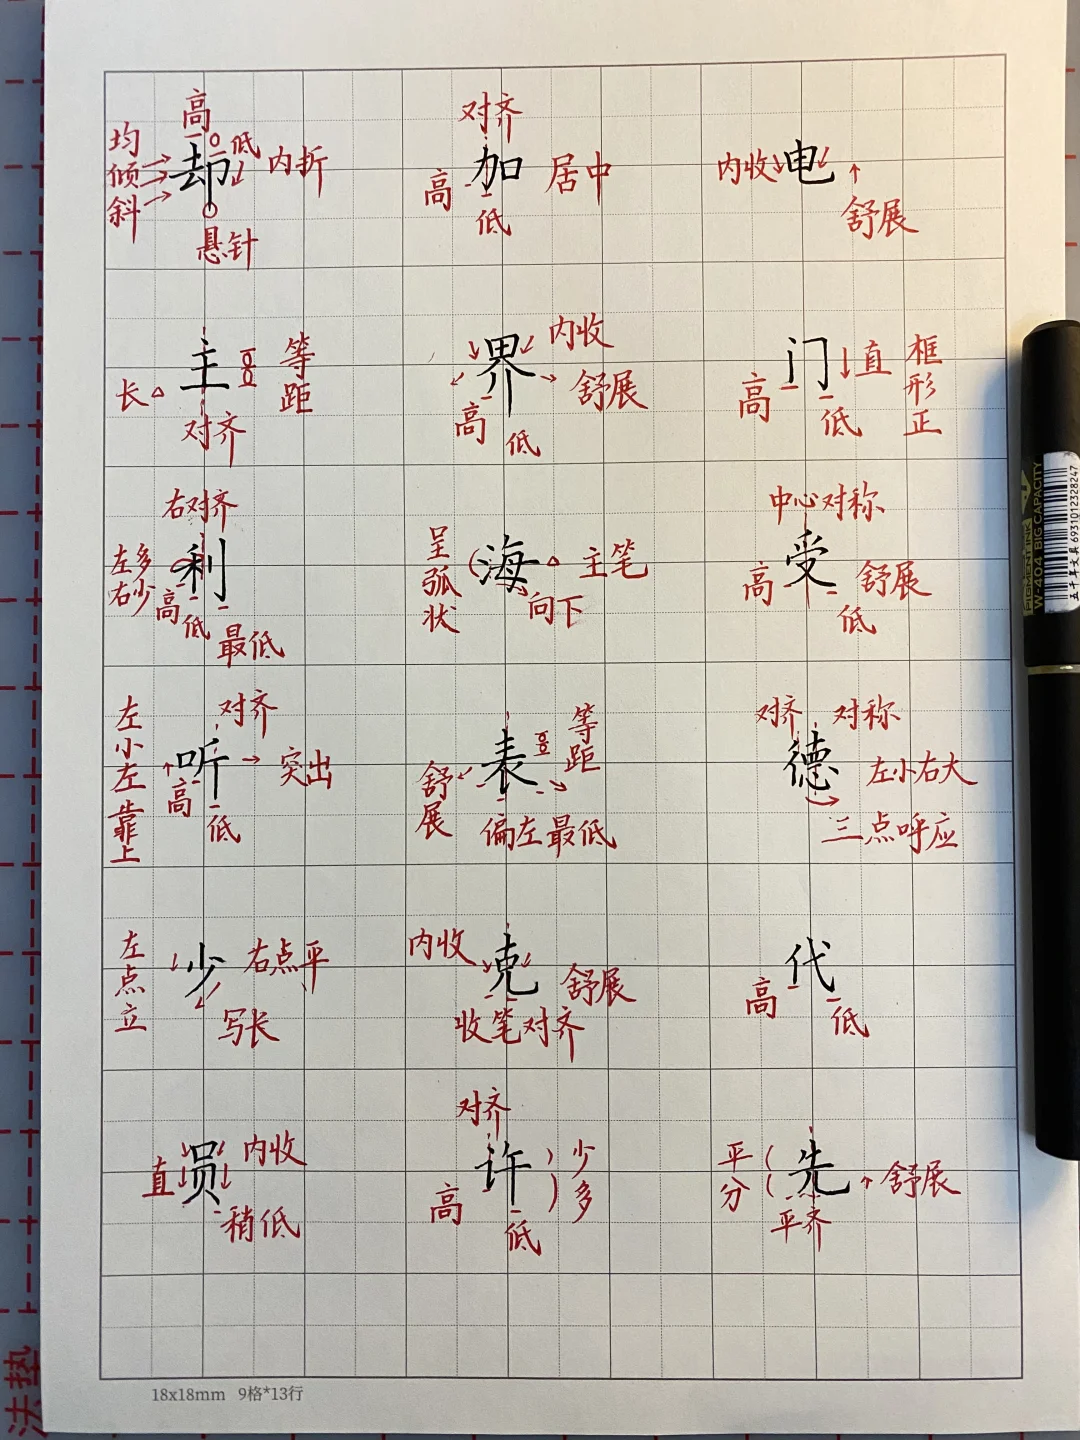 高
均倾斜
却
低
内折
悬针
对齐
高
加
居中
低
内收
电
舒展
主
等距
长
对齐
内收
界
舒展
高
低
门
直
框形正
高
低
右对齐
左多右少
利
高
低
最低
呈弧状
海
主笔
向下
中心对称
高
受
舒展
低
对齐
左小左靠上
听
突出
高
低
等距
表
舒展
偏左最低
对齐 对称
德
左小右大
三点呼应
左点立
少
右点平
写长
内收
克
舒展
收笔对齐
代
高
低
直
员
内收
稍低
对齐
许
少多
高
低
平分
先
舒展
平齐
18x18mm 9格*13行
PIGMENT INK
W-404 BIG CAPACITY
五千年文具 6931012328247
法垫